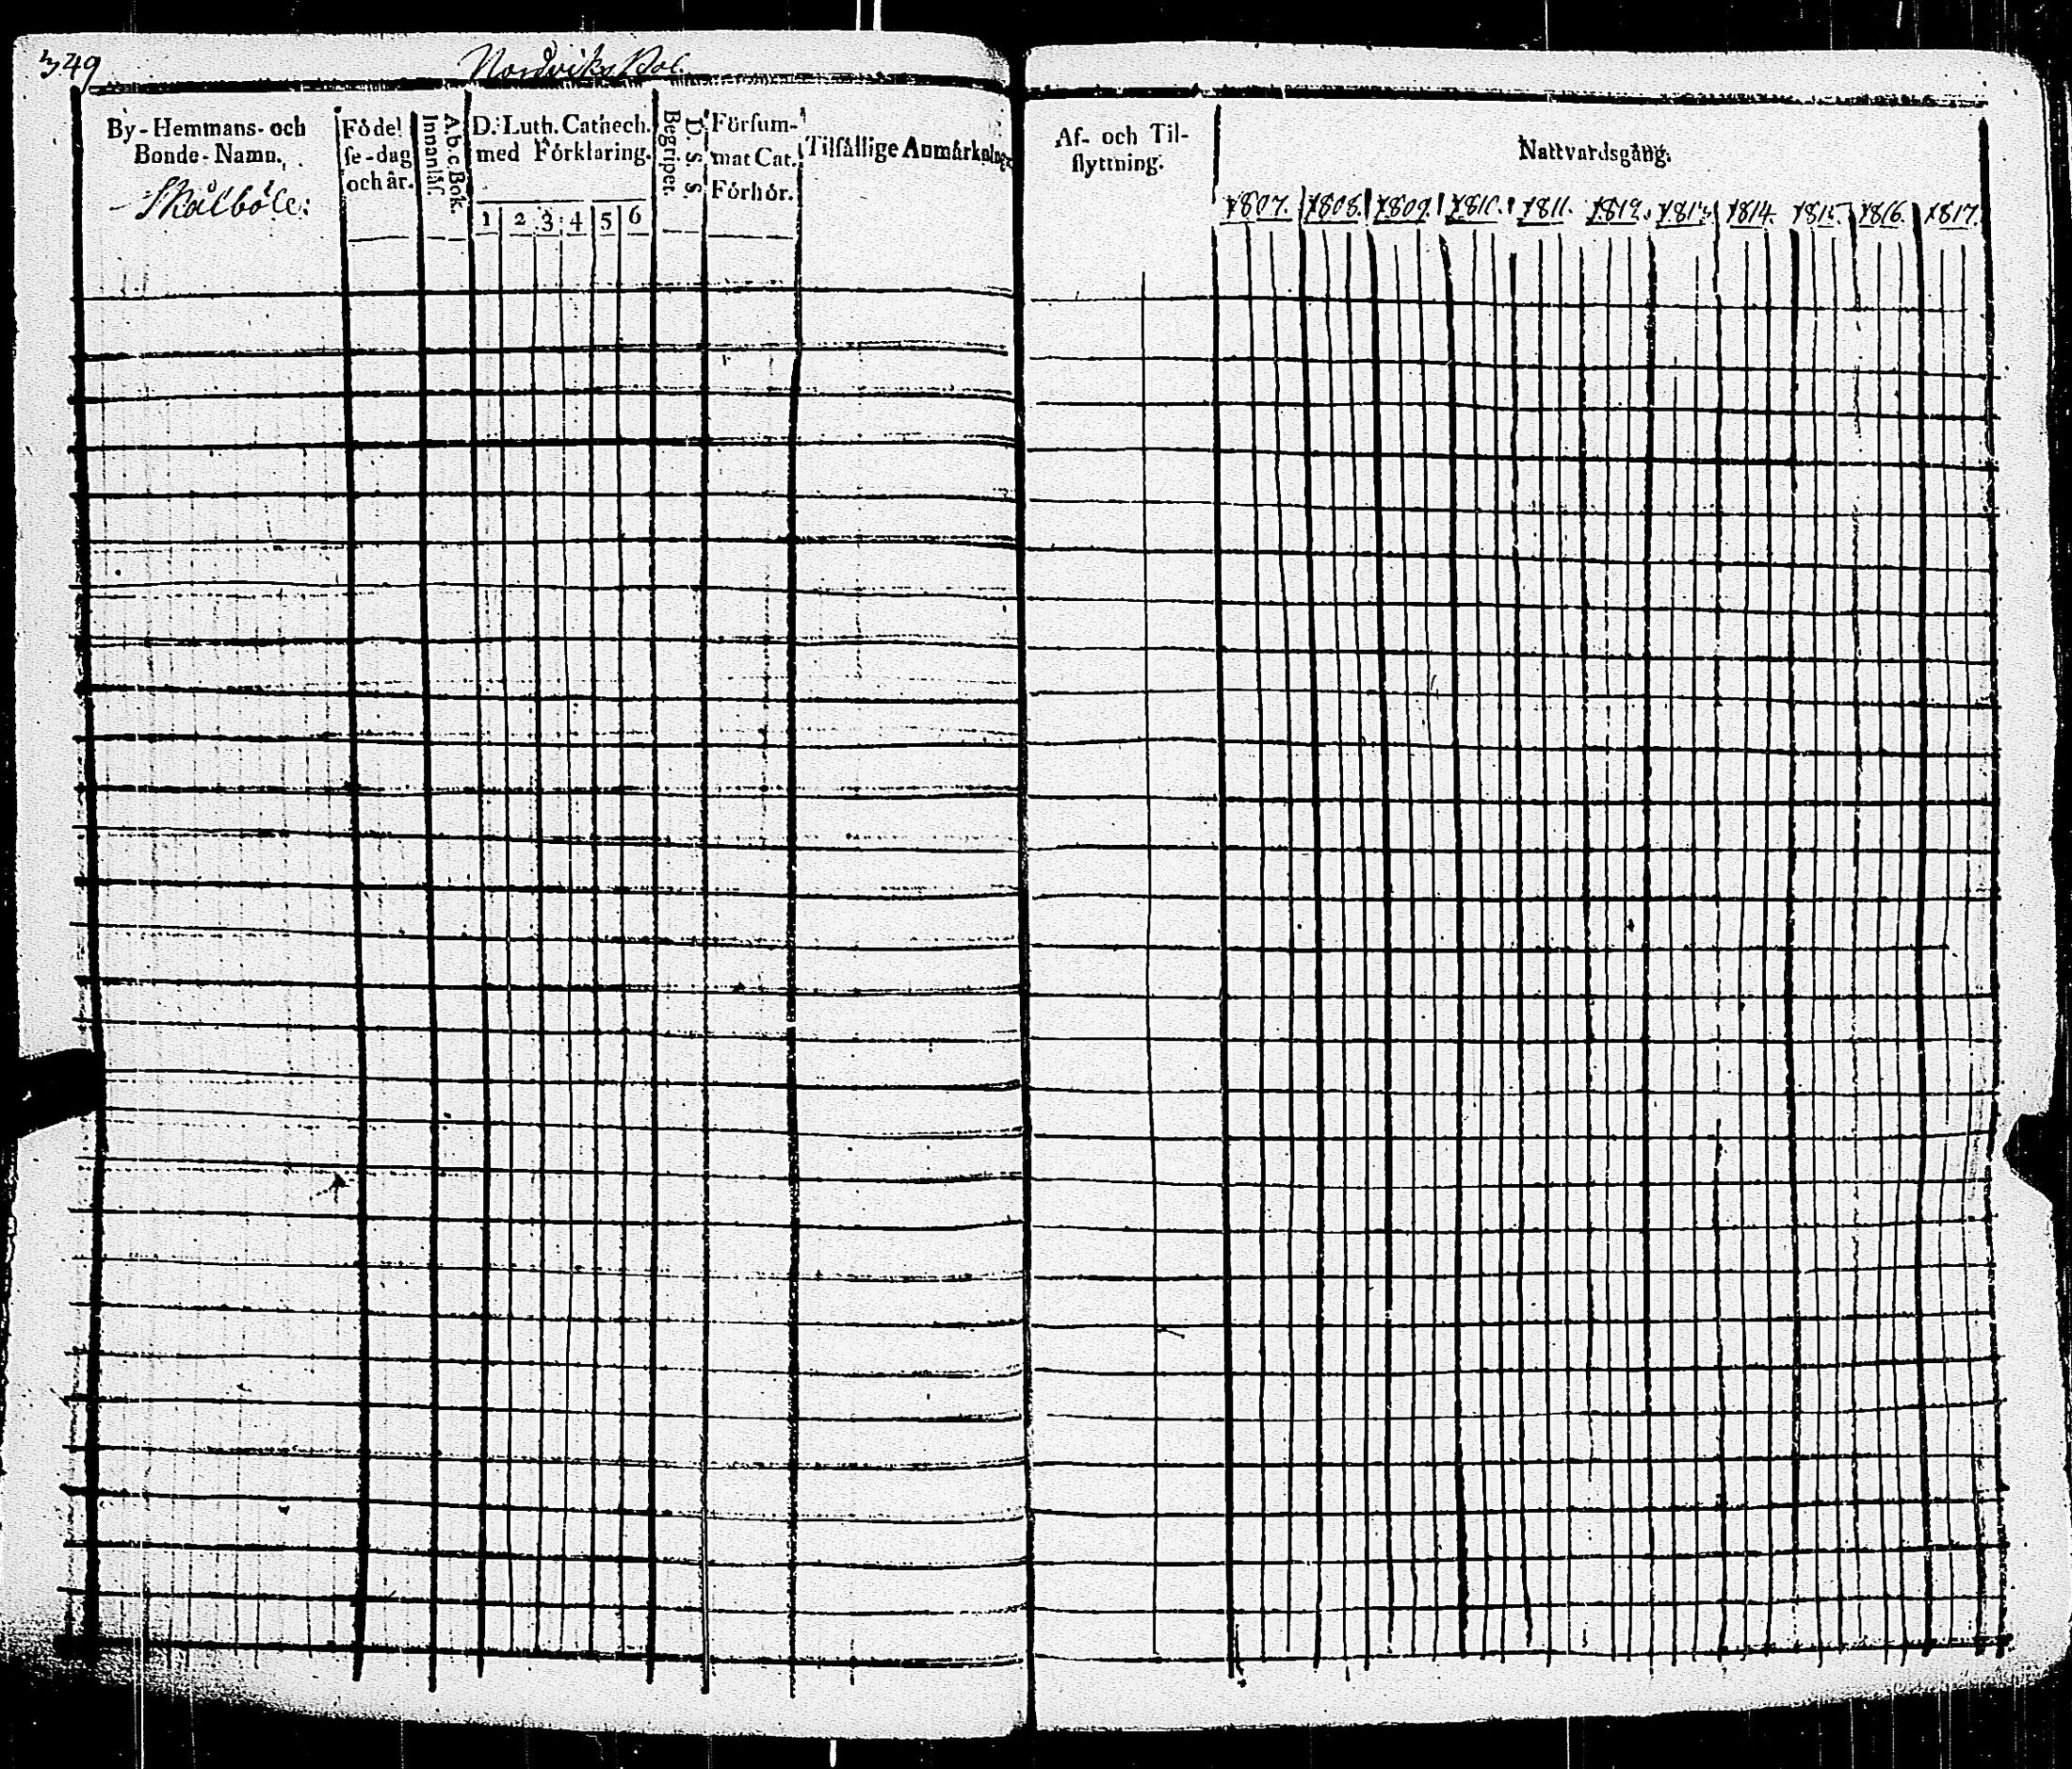 349
Nordviks Bol.
By-Hemmans- och
Bonde-Namn.
Skålböle:
Födel
se-dag
och år.
A.b.c.Bok.
Innanläs.
D. Luth. Cathech.
med Förklaring.
1 2 3 4 5 6
D. S. S.
Begriper.
Försum-
mat Cat.
Förhör.
Tilfällige Anmärkning.
Af- och Til-
flyttning.
Nattvardsgång.
1807. 1808. 1809. 1810. 1811. 1812. 1813. 1814. 1815. 1816. 1817.